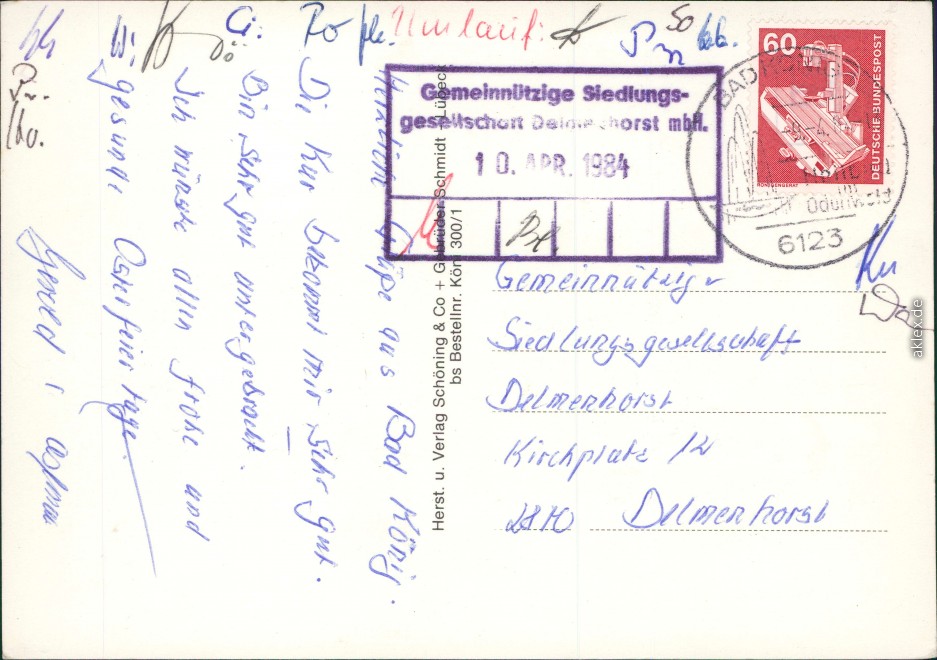 Umlauf:
Gemeinnützige Siedlungs-
gesellschaft Delmenhorst mbH.
10. APR. 1984
60
DEUTSCHE BUNDESPOST
RÖNTGENGERÄT
BAD KÖNIG
Odenwald
6123
Grüße aus Bad König.
Die Kur bekommt mir sehr gut.
Bin sehr gut untergebracht.
Ich wünsche allen frohe und
gesunde Osterfeiertage.
Herst. u. Verlag Schöning & Co + Gebrüder Schmidt - Lübeck
bs Bestellnr. Kön 300/1
Gemeinnützige
Siedlungsgesellschaft
Delmenhorst
Kirchplatz 12
2870 Delmenhorst
aklex.de